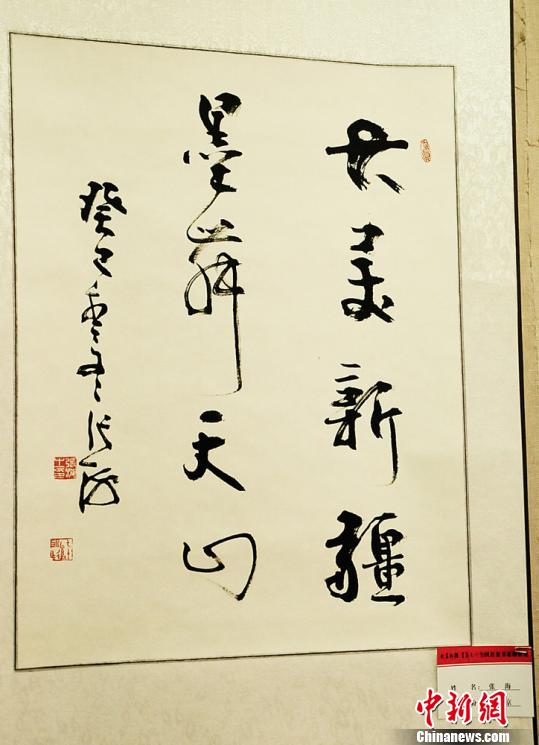 美新疆
墨舞天山
癸巳 冬张海
姓 名：张 海
京
中新网
www.chinanews.com